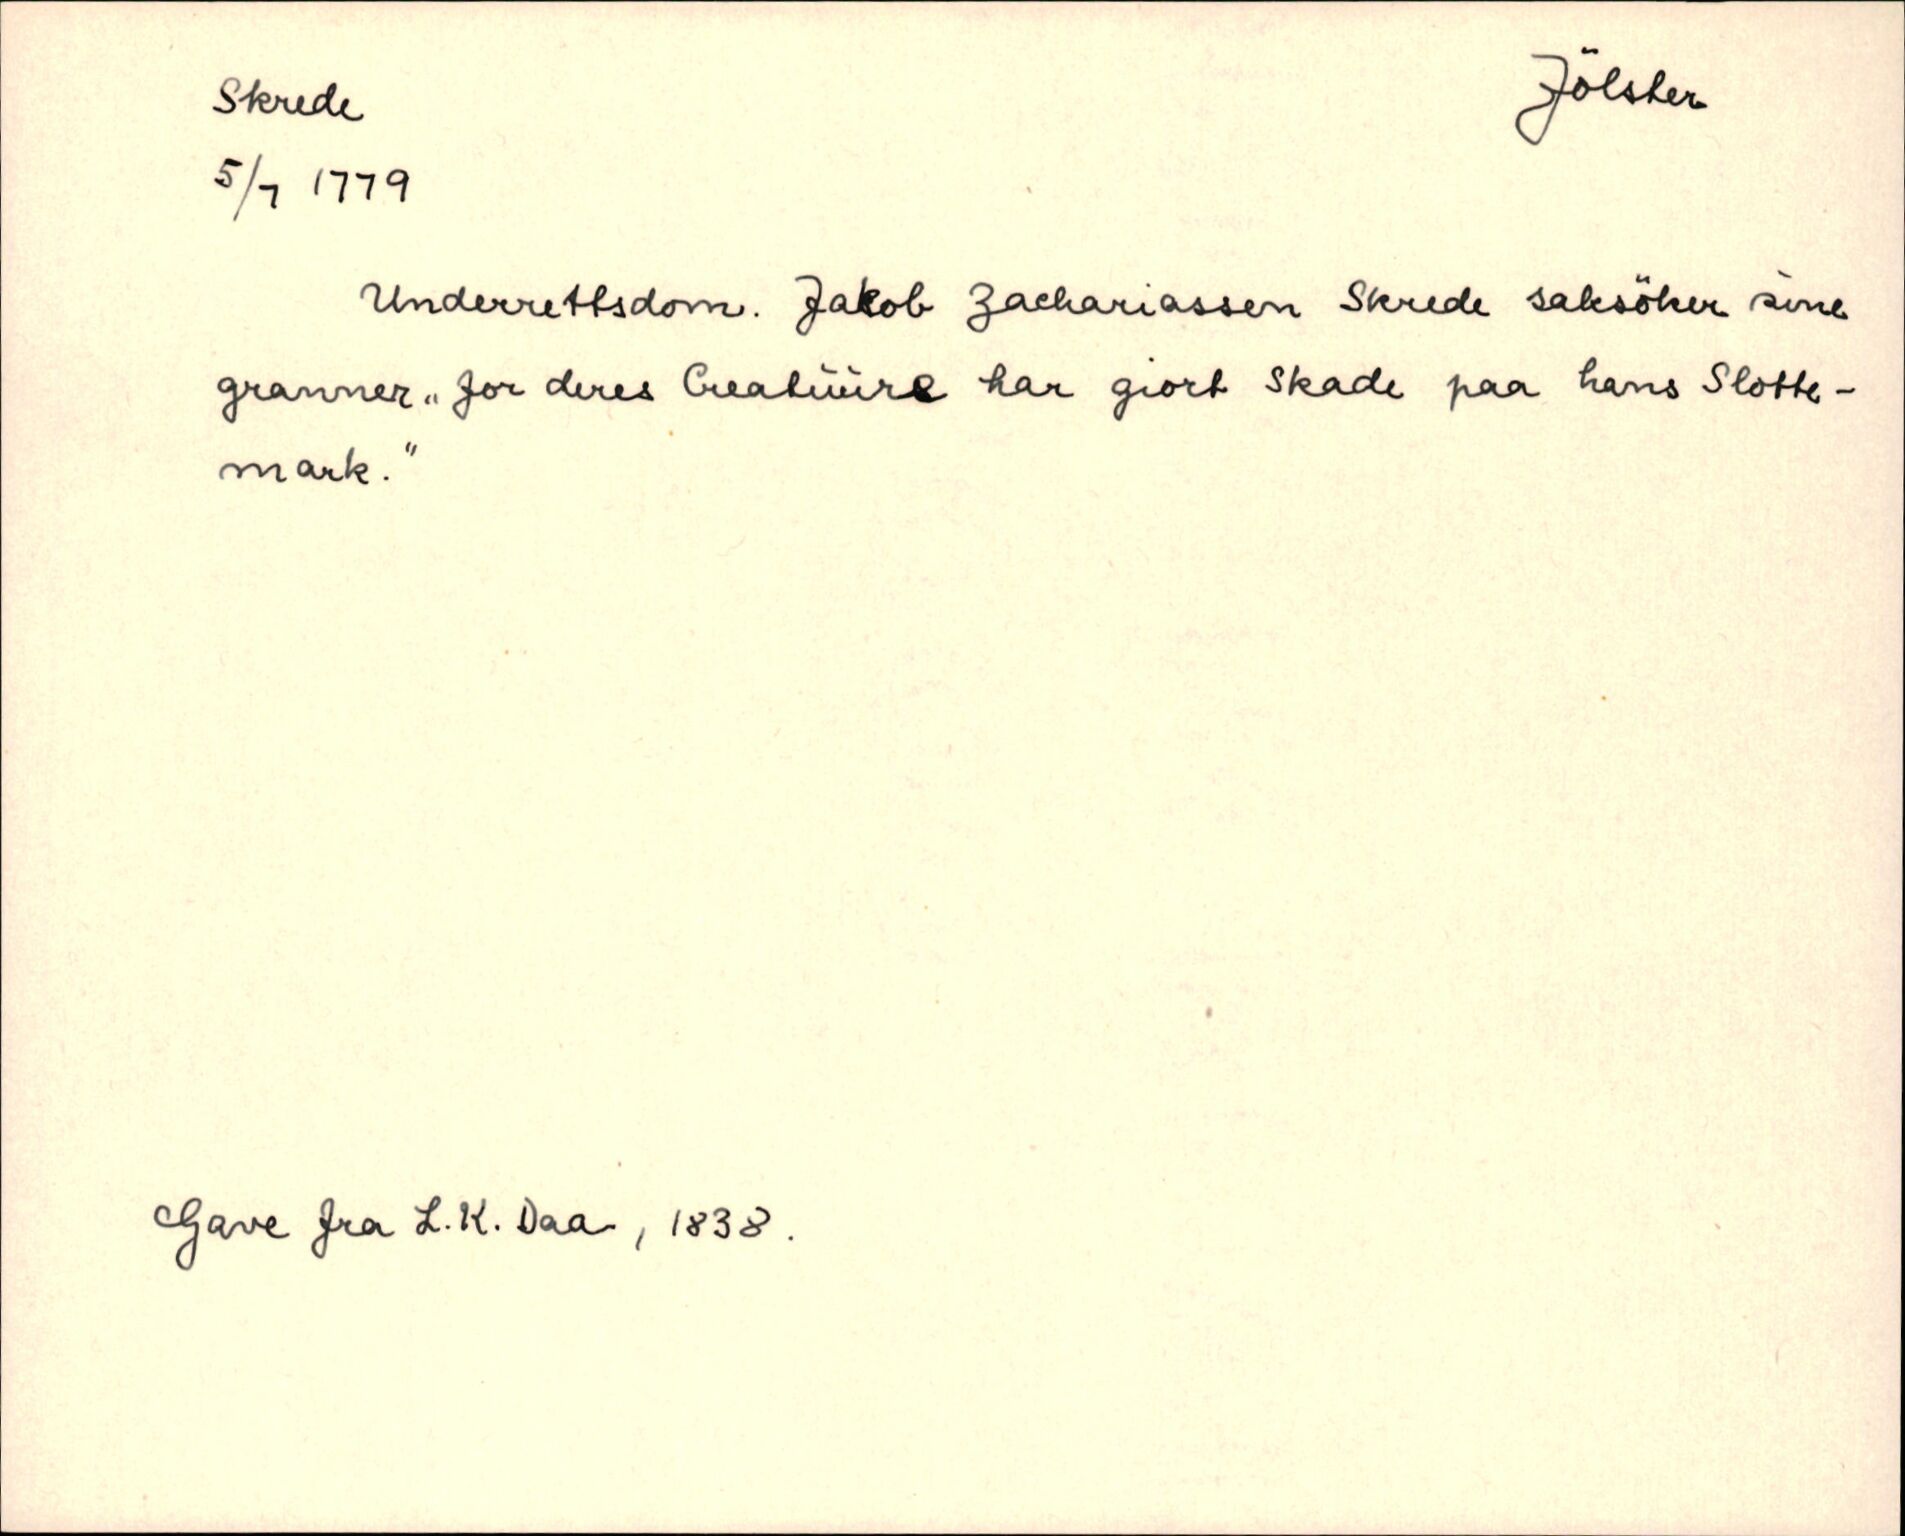 Skrede
Jölster
5/7 1779
Underrettsdom. Jakob Zachariassen Skrede saksöker sine
granner „for deres Creatüüre har giort Skade paa hans Slotte-
mark."
Gave fra L. K. Daa, 1838.